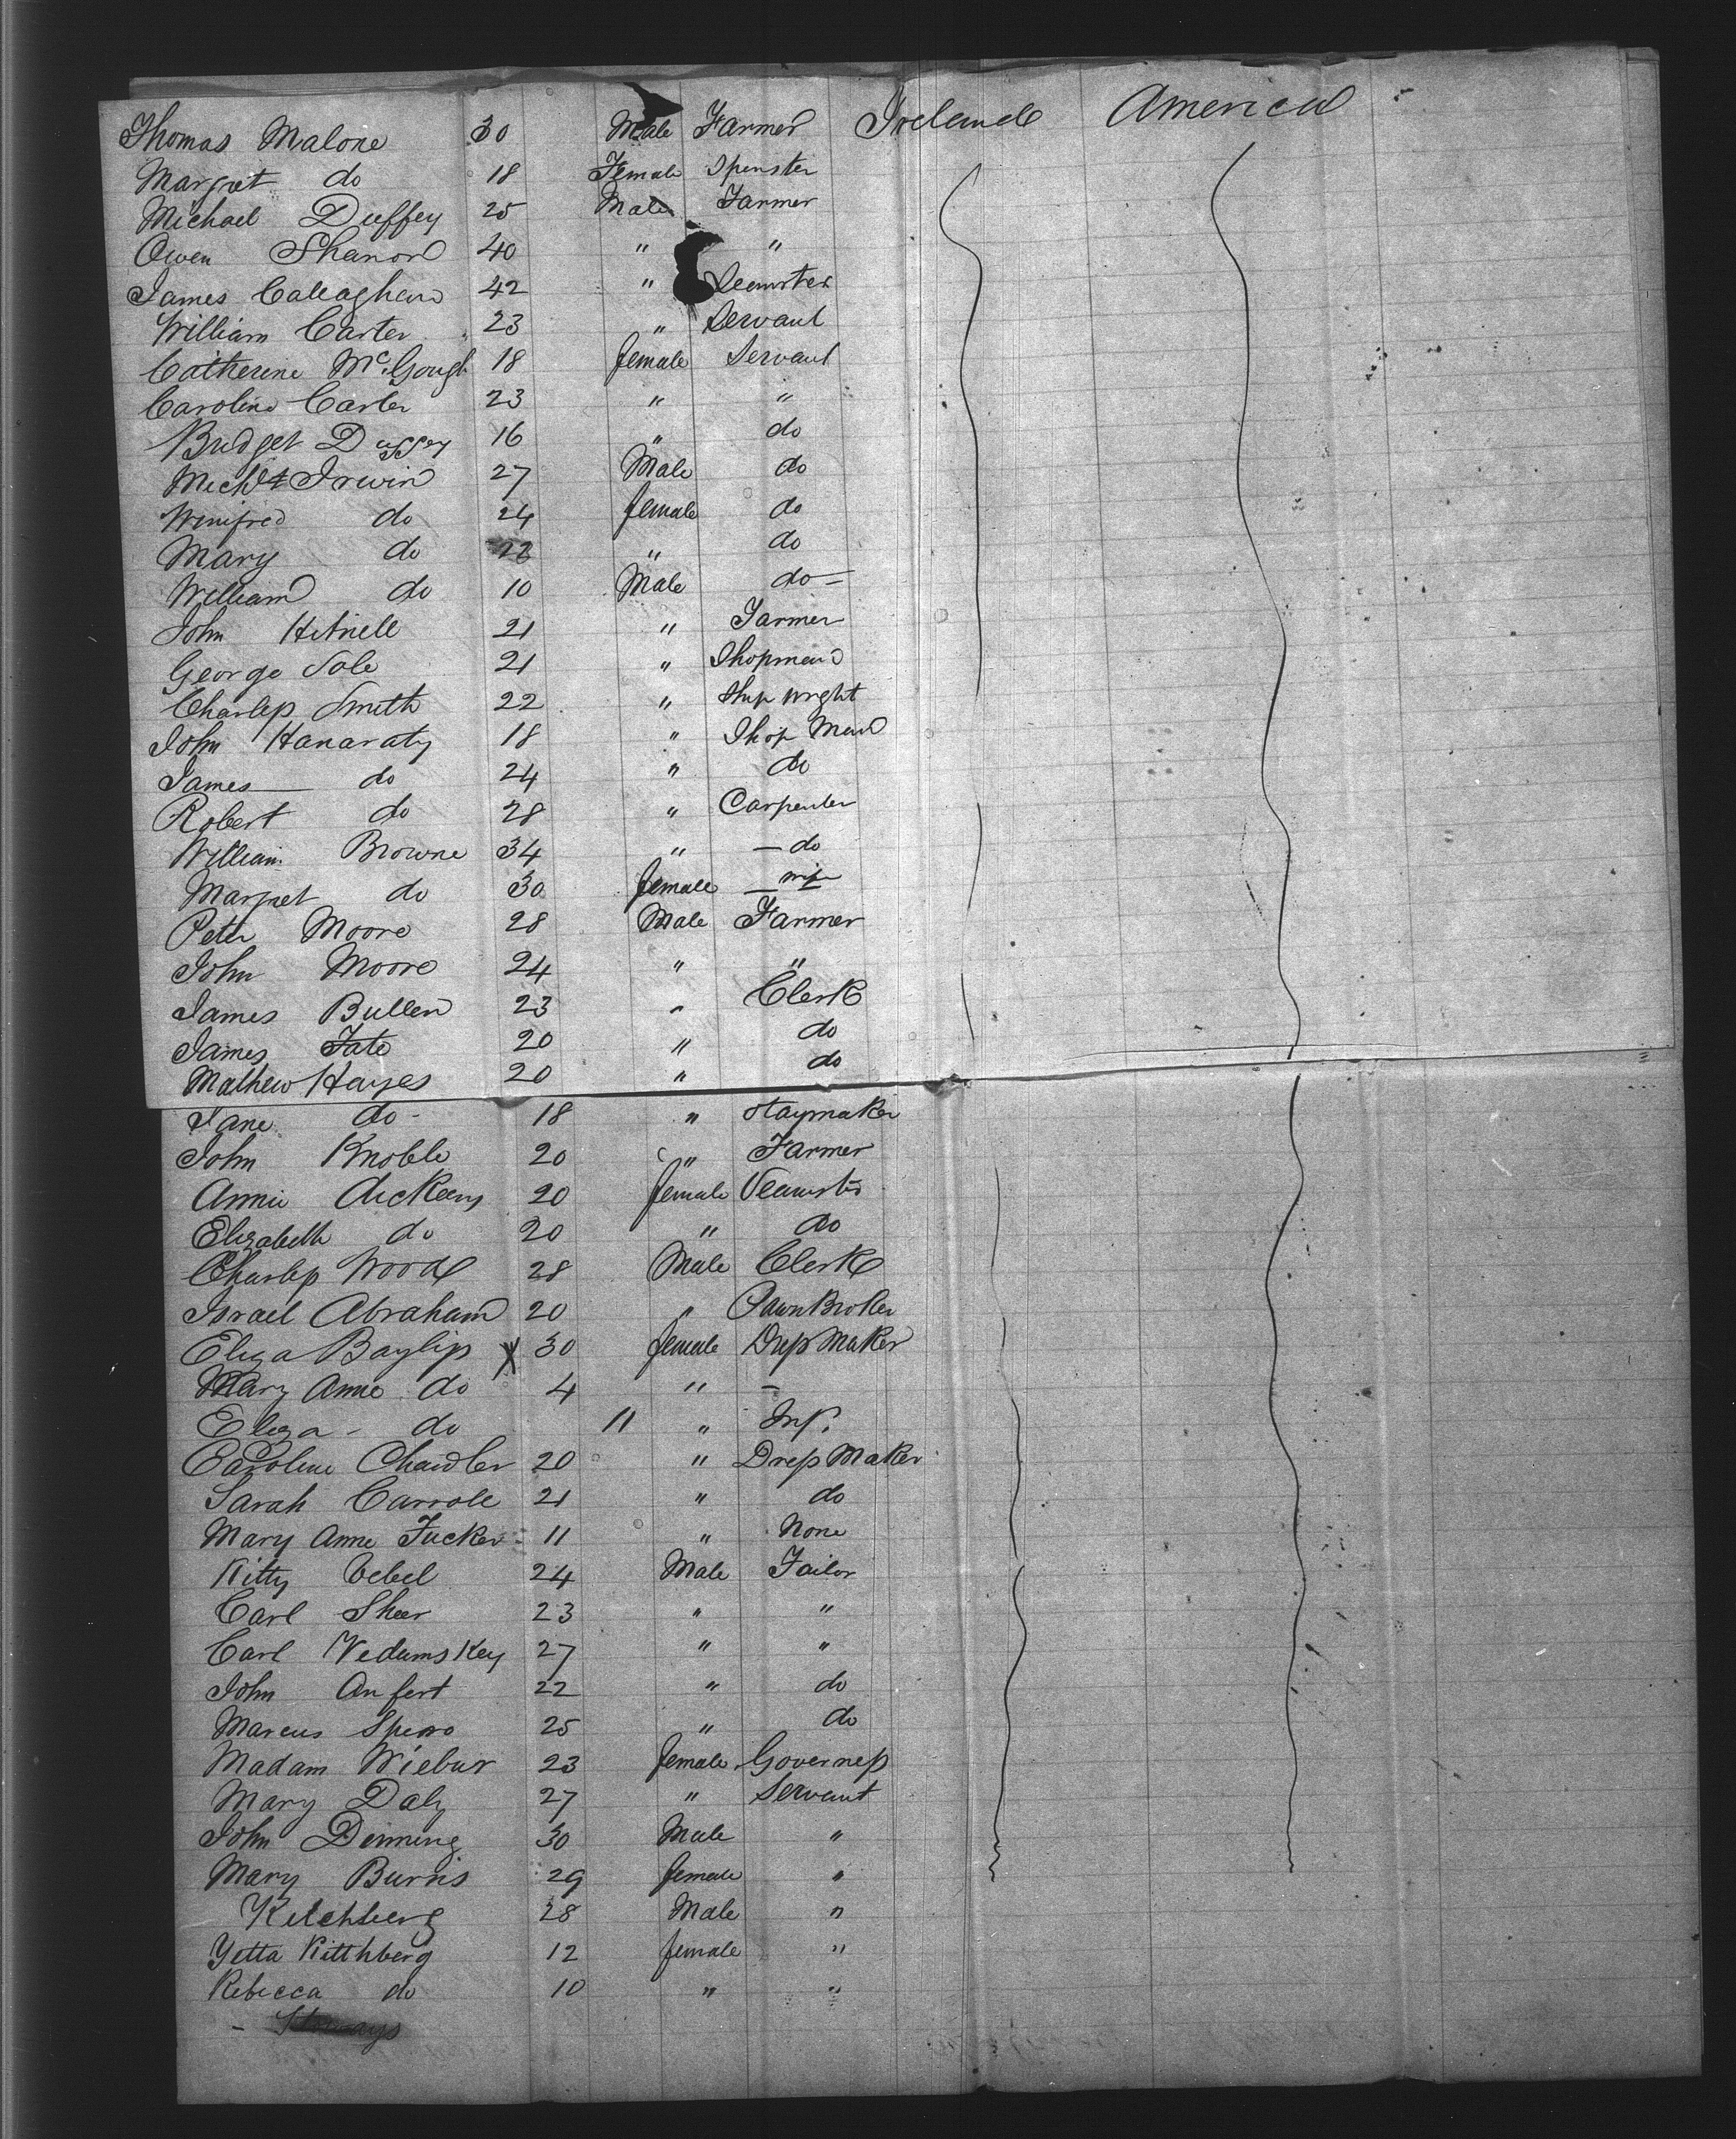 Thomas Malone 30 Male Farmer Ireland America
Margret do 18 Female Spinster
Michael Duffey 25 Male Farmer
Owen Shanon 40 " "
James Callaghan 42 " Seamster
William Carter 23 " Servant
Catherine McGough 18 female Servant
Caroline Carter 23 " "
Bridget Duffey 16 " do
Irwin 27 Male do
Winifred do 24 female do
Mary do 22 " do
William do 10 Male do
John 21 " Farmer
George Sole 21 " Shopman
Charles Smith 22 " Ship wright
John Hanaraty 18 " Shop Man
James do 24 " do
Robert do 28 " Carpenter
William Browne 34 " do
Margret do 30 female wife
Peter Moore 28 Male Farmer
John Moore 24 " "
James Bullen 23 " Clerk
James Tate 20 " do
Mathew Hayes 20 " do
Jane do 18 " Staymaker
John Knoble 20 " Farmer
Annie dickens 20 female
Elizabeth do 20 " do
Charles Wood 28 Male Clerk
Israel Abraham 20 " Pawn Broker
Eliza Bayliss X 30 female Dress Maker
Mary Anne do 4 " -
Eliza - do 11 " Inf.
Caroline Chandler 20 " Dress Maker
Sarah Carrole 21 " do
Mary Anne Tucker 11 " None
Kitty 24 Male Tailor
Carl Sheer 23 " "
Carl Vedumskey 27 " "
John Anfert 22 " do
Marcus Spero 25 " do
Madam Wiebur 23 female Governess
Mary Daly 27 " Servant
John Dinning 30 Male "
Mary Burns 29 female "
Kelchberg 28 Male "
Yetta Kitthberg 12 female "
Rebecca do 10 " "